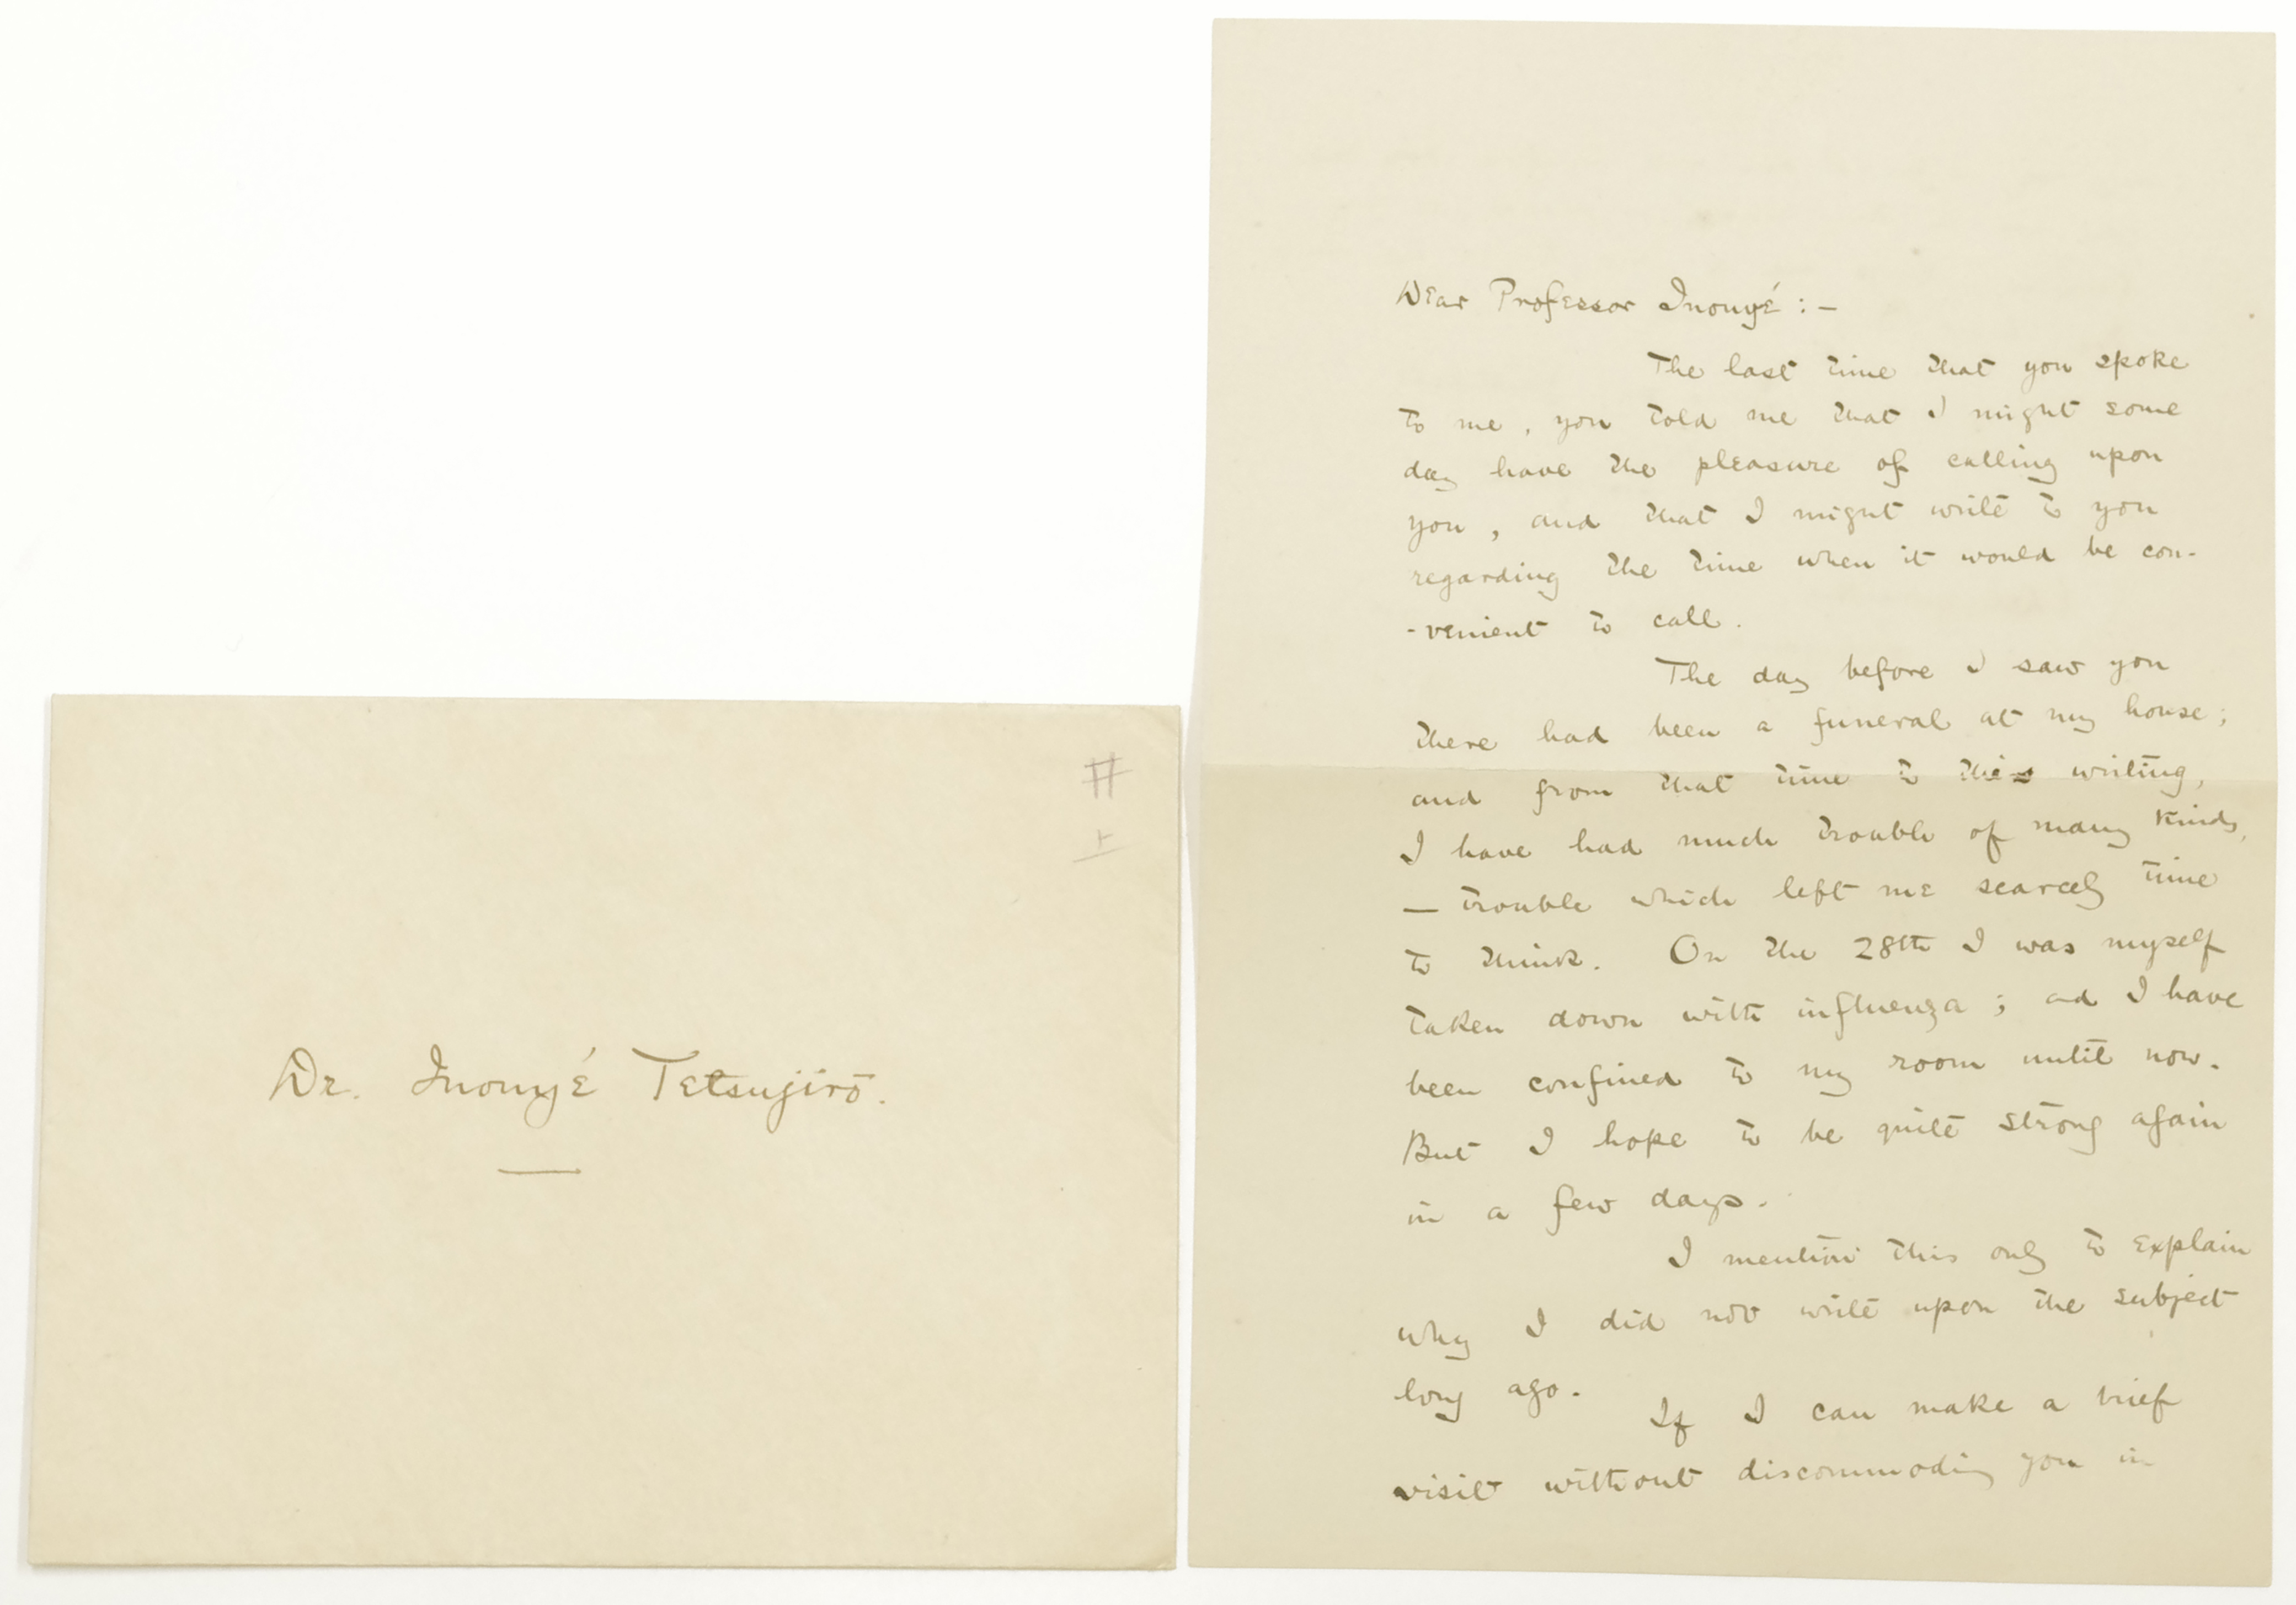 Dr. Inouyé Tetsujirō.
Dear Professor Inouyé : —
The last time that you spoke
to me, you told me that I might some
day have the pleasure of calling upon
you, and that I might write to you
regarding the time when it would be con-
-venient to call.
The day before I saw you
there had been a funeral at my house;
and from that time to this writing,
I have had much trouble of many kinds,
— trouble which left me scarcely time
to think. On the 28th I was myself
taken down with influenza; and I have
been confined to my room until now.
But I hope to be quite strong again
in a few days.
I mention this only to explain
why I did not write upon the subject
long ago.
If I can make a brief
visit without discommoding you in